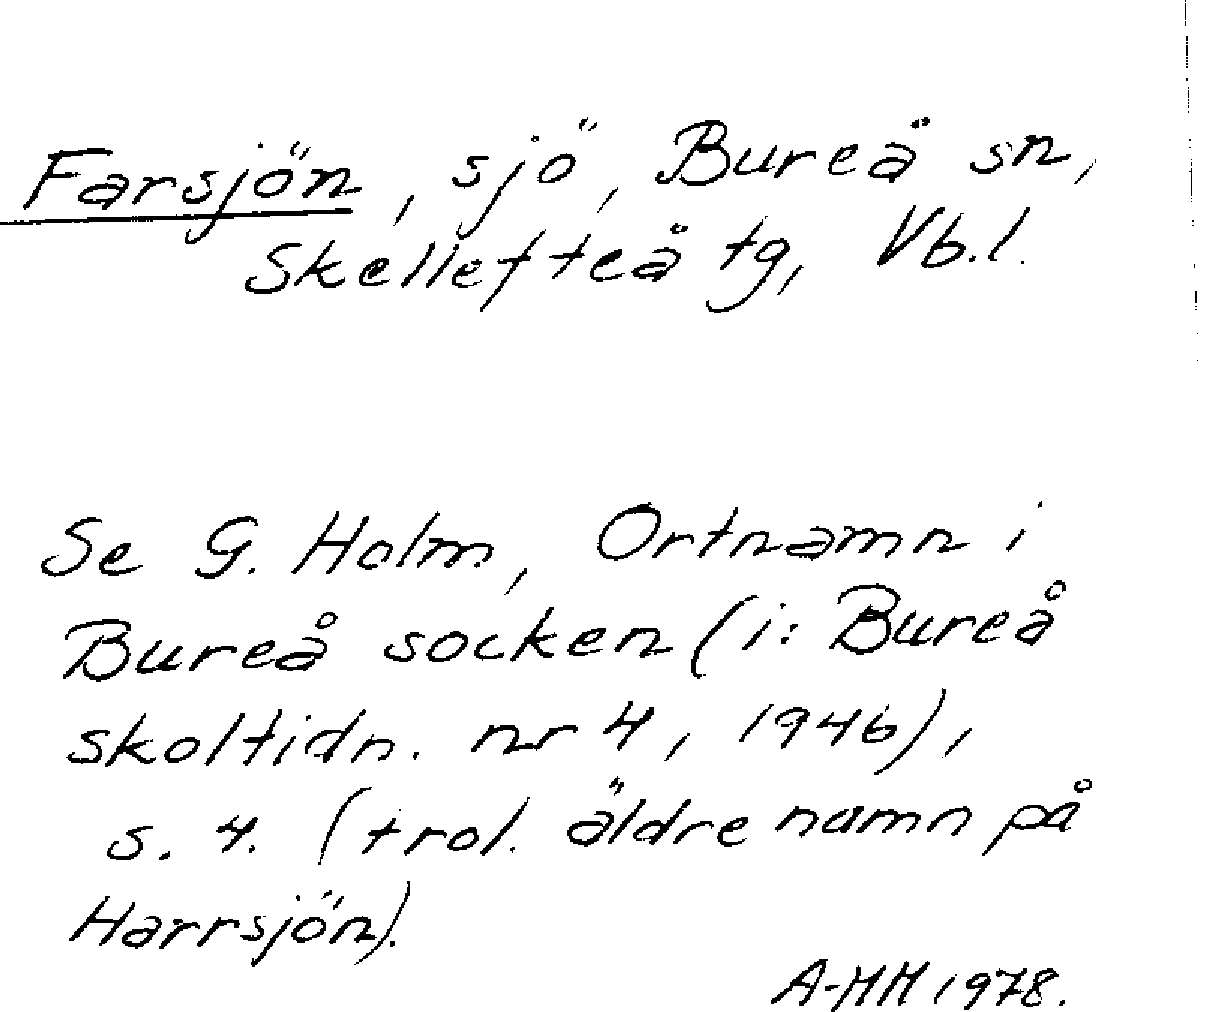 Farsjön, sjö, Bureå sn,
Skellefteå tg, Vb.l.
Se G. Holm, Ortnamn i
Bureå socken (i: Bureå
skoltidn. nr 4, 1946),
s. 4. (trol. äldre namn på
Harrsjön).
A-MM 1978.